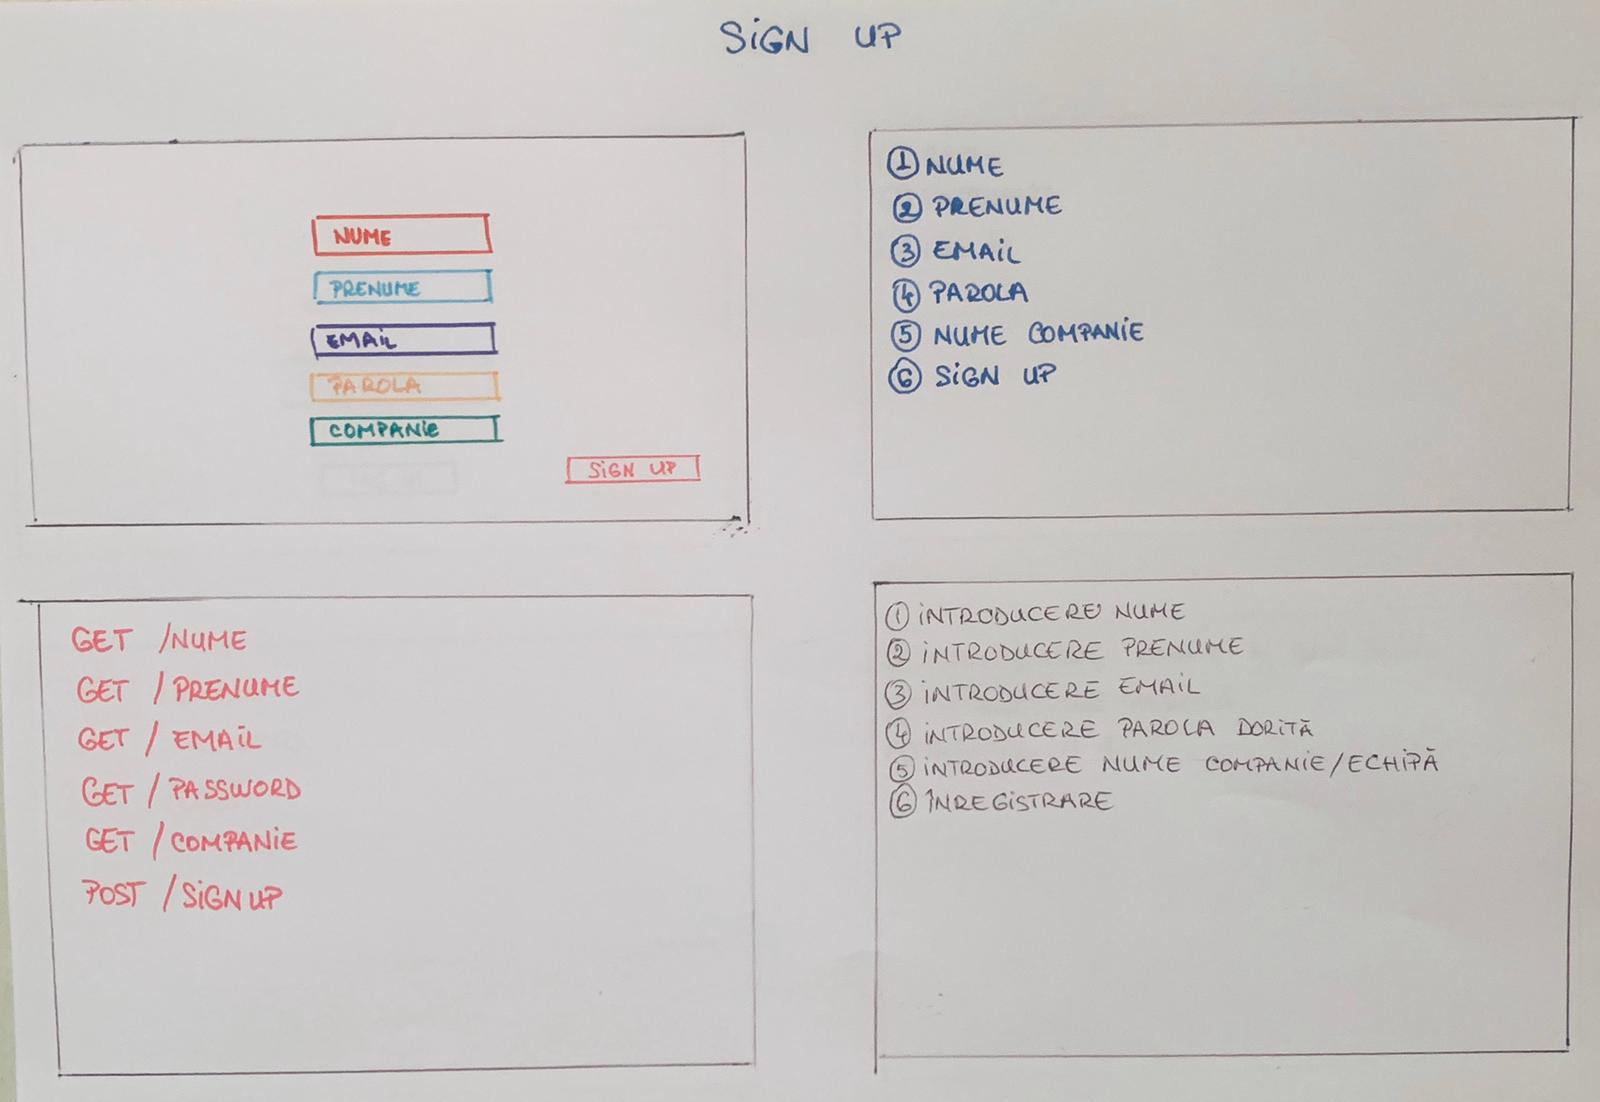 SIGN UP
NUME
PRENUME
EMAIL
PAROLA
COMPANIE
SIGN UP
① NUME
② PRENUME
③ EMAIL
④ PAROLA
⑤ NUME COMPANIE
⑥ SIGN UP
GET /NUME
GET / PRENUME
GET / EMAIL
GET / PASSWORD
GET / COMPANIE
POST / SIGN UP
① INTRODUCERE NUME
② INTRODUCERE PRENUME
③ INTRODUCERE EMAIL
④ INTRODUCERE PAROLA DORITĂ
⑤ INTRODUCERE NUME COMPANIE/ECHIPĂ
⑥ ÎNREGISTRARE